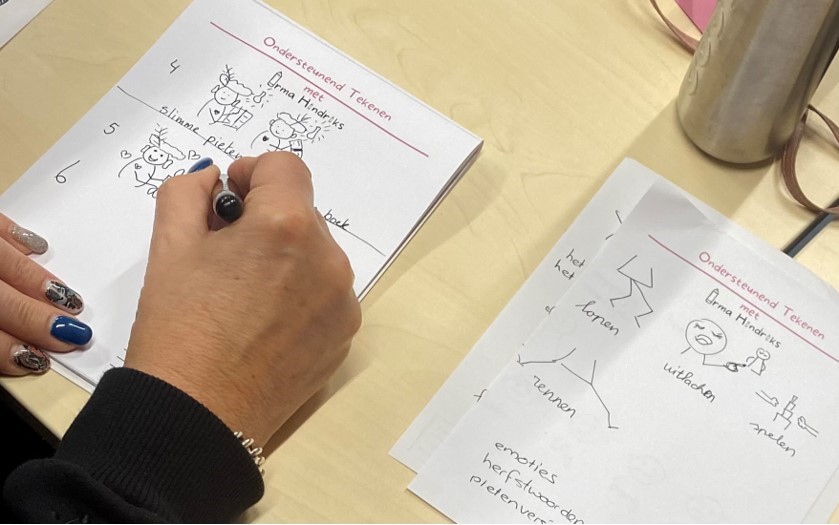 Ondersteunend Tekenen
met
Irma Hindriks
4
slimme pieten
boek
5
6
Ondersteunend Tekenen
met
Irma Hindriks
het
het
lopen
uitlachen
rennen
spelen
emoties
herfstwoorden